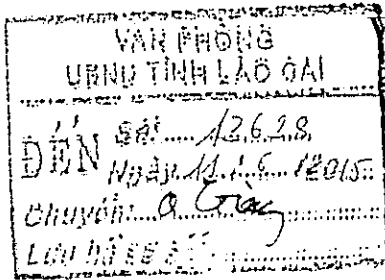 VĂN PHÒNG
UBND TỈNH LÀO CAI
ĐẾN Số: 12628
Ngày 11/6/2015
Chuyển: a
Lưu hồ sơ số: